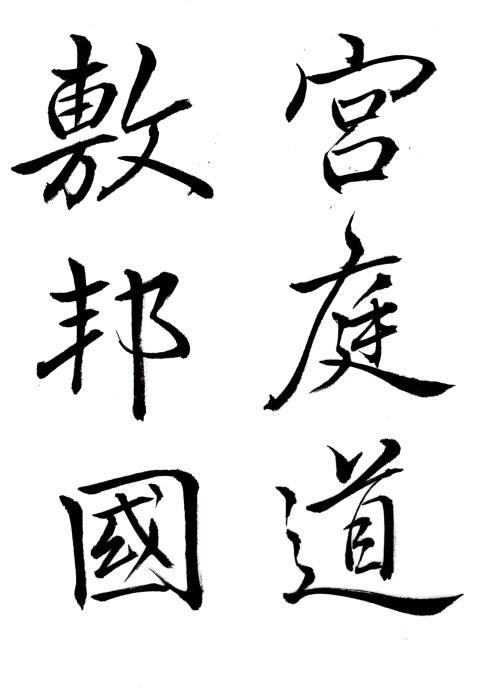 宮庭道
敷邦國